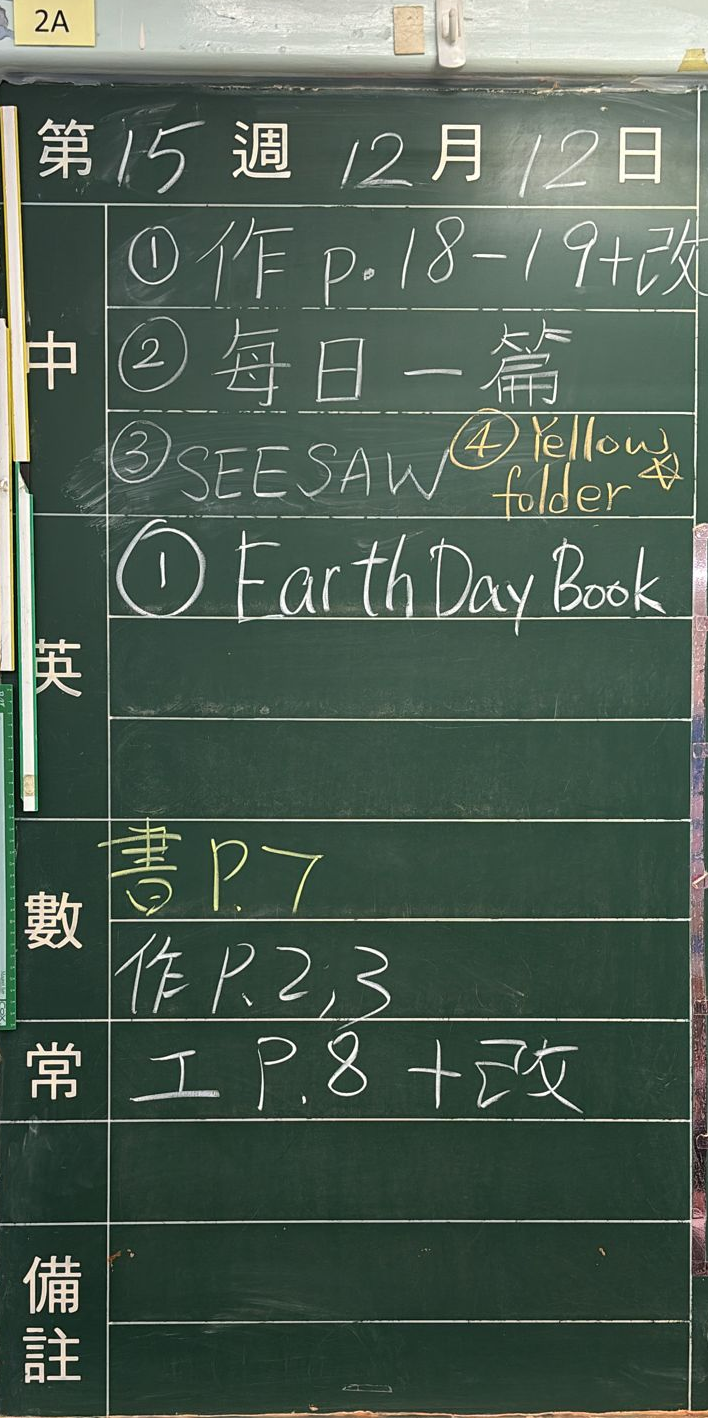 2A
第15週12月12日
中
①作 p.18-19+改
②每日一篇
③SEESAW ④Yellow folder
英
①Earth Day Book
數
書 P.7
作 P.2,3
常
工 P.8 +改
備註